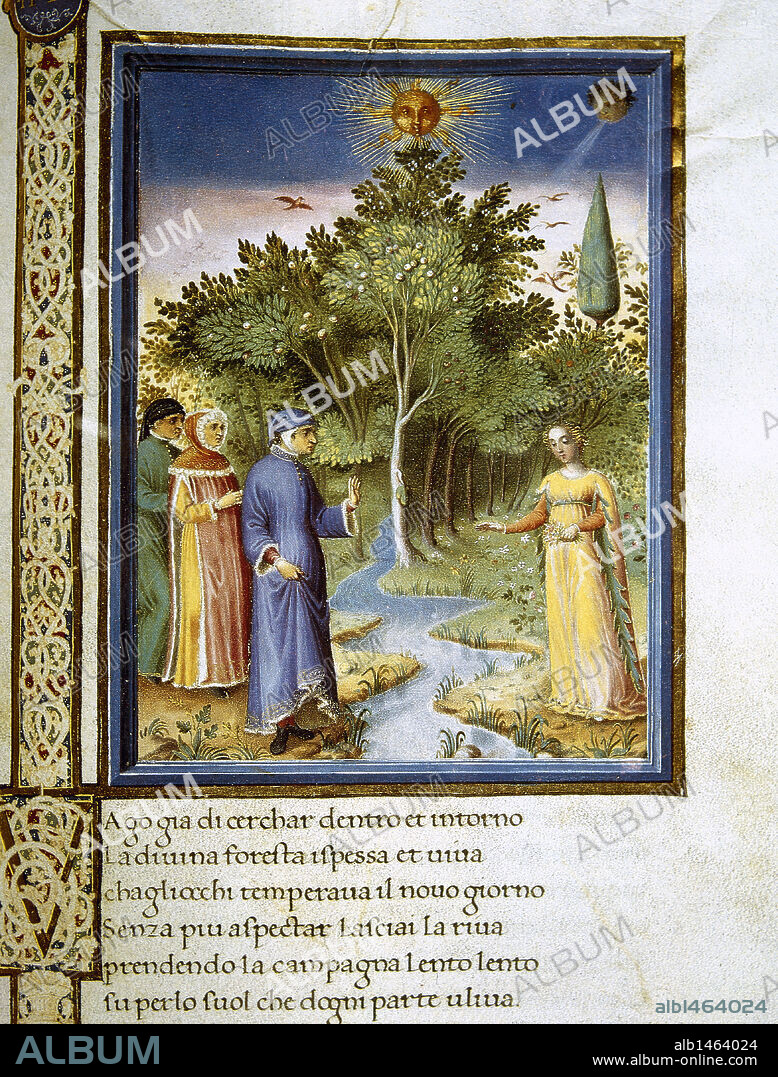 Ago gia di cerchar dentro et intorno
La diuina foresta ispessa et uiua
chagliocchi temperaua il nouo giorno
Senza piu aspectar lasciai la riua
prendendo la campagna lento lento
su per lo suol che dogni parte uliua
ALBUM
ALBUM
ALBUM
ALBUM
ALBUM
ALBUM
ALBUM
ALBUM
ALBUM
ALBUM
ALBUM
ALBUM
alb1464024
ALBUM
alb1464024
www.album-online.com